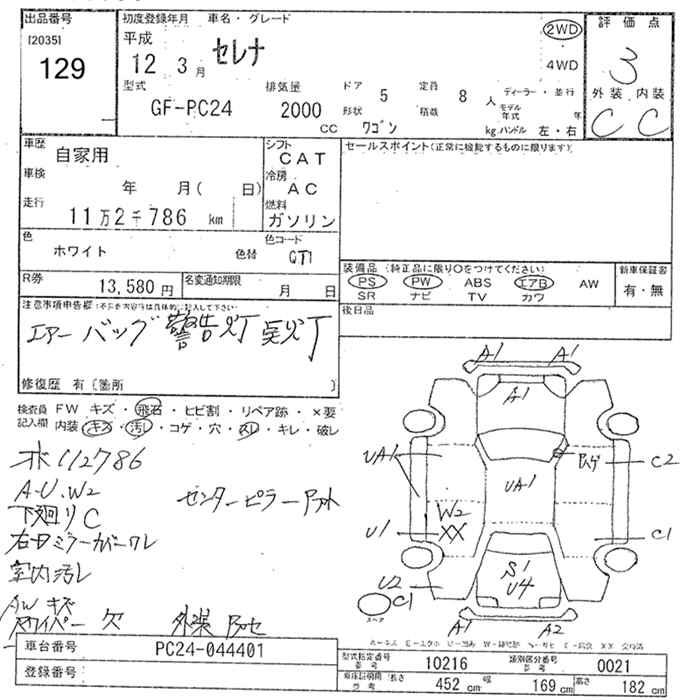 出品番号
[2035]
129
初度登録年月 車名・グレード
平成
12 年 3 月
セレナ
2WD
4WD
評価点
3
外装 内装
C C
型式
GF-PC24
排気量
2000
CC
ドア
5
形状
ワゴン
定員
8 人
積載
kg
ディーラー・並行
モデル年式 年
ハンドル 左・右
車歴
自家用
車検
年 月( 日)
走行
11万2千786 km
シフト
CAT
冷房
AC
燃料
ガソリン
セールスポイント(正常に機能するものに限ります)
色
ホワイト
色替
色コード
QT1
R券
13,580円
名変通知期限
月 日
装備品 (純正品に限り○をつけてください)
PS PW ABS エアB AW
SR ナビ TV カワ
新車保証書
有・無
後日品
注意事項申告欄(不具合内容等は具体的に記入して下さい)
エアーバッグ警告灯点灯
修復歴 有〔箇所 〕
検査員 FW キズ・飛石・ヒビ割・リペア跡・×要
記入欄 内装 キズ・汚レ・コゲ・穴・スレ・キレ・破レ
メ112786
A・U・W2
センターピラー
下廻りC
右ミラーカバーワレ
室内汚レ
AW キズ
ワイパー 欠
外装
A1 A1
A1
UA1
UA1
C2
W2
XX
U1
C1
S1
U4
U2
C1
スペア
A1 A2
車台番号
PC24-044401
登録番号
型式指定番号
10216
類別区分番号
0021
長さ
452 cm
幅
169 cm
高さ
182 cm